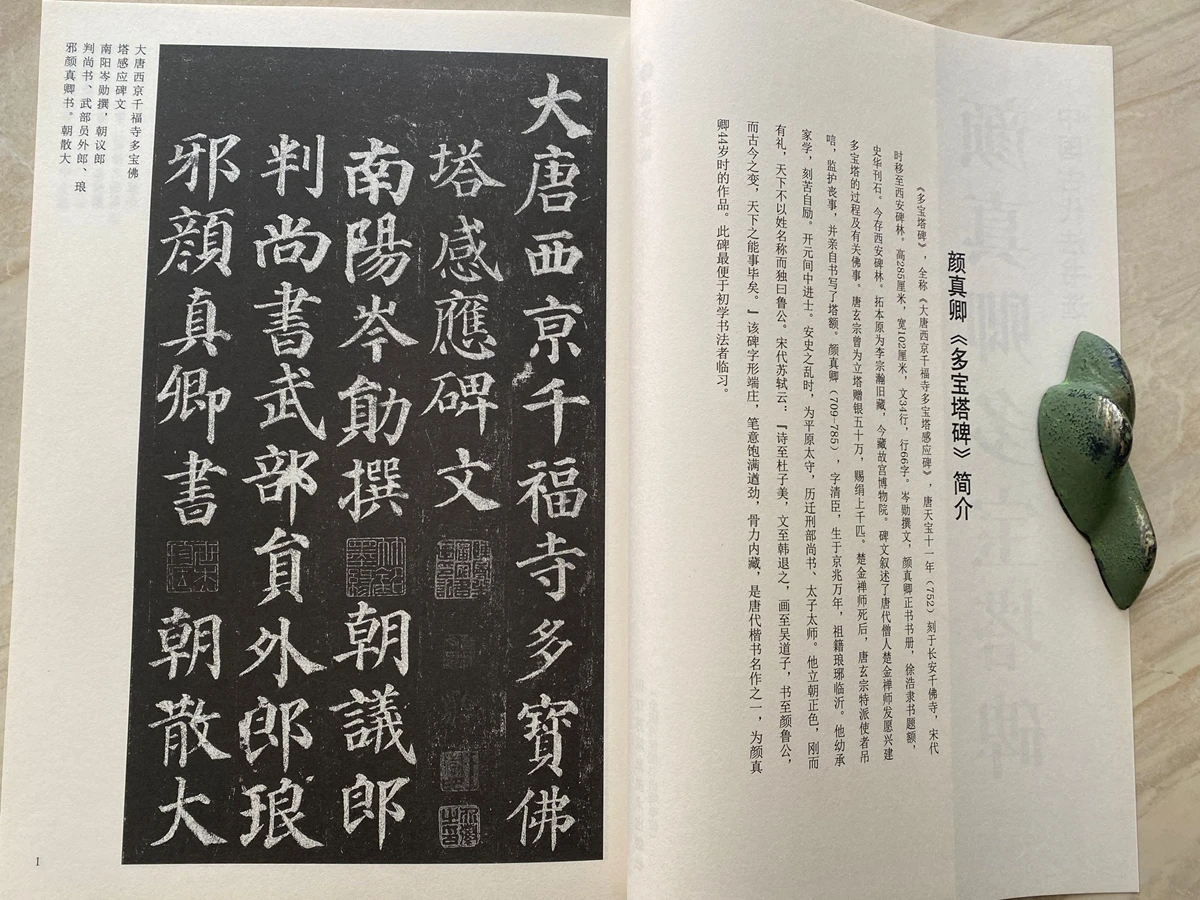 颜真卿《多宝塔碑》简介
《多宝塔碑》，全称《大唐西京千福寺多宝塔感应碑》，唐天宝十一年（752）刻于长安千佛寺，宋代
时移至西安碑林。高285厘米，宽102厘米，文34行，行66字。岑勋撰文，颜真卿正书书册，徐浩隶书题额，
史华刊石。今存西安碑林。拓本原为李宗瀚旧藏，今藏故宫博物院。碑文叙述了唐代僧人楚金禅师发愿兴建
多宝塔的过程及有关佛事。唐玄宗曾为立塔赠银五十万，赐绢上千匹。楚金禅师死后，唐玄宗特派使者吊
唁，监护丧事，并亲自书写了塔额。颜真卿（709-785），字清臣，生于京兆万年，祖籍琅琊临沂。他幼承
家学，刻苦自励。开元间中进士。安史之乱时，为平原太守，历迁刑部尚书、太子太师。他立朝正色，刚而
有礼，天下不以姓名称而独曰鲁公。宋代苏轼云：『诗至杜子美，文至韩退之，画至吴道子，书至颜鲁公，
而古今之变，天下之能事毕矣。』该碑字形端庄，笔意饱满遒劲，骨力内藏，是唐代楷书名作之一，为颜真
卿44岁时的作品。此碑最便于初学书法者临习。
大唐西京千福寺多寶佛
塔感應碑文
南陽岑勛撰朝議郎
判尚書武部員外郎琅
邪顏真卿書朝散大
大唐西京千福寺多宝佛
塔感应碑文
南阳岑勋撰，朝议郎
判尚书、武部员外郎、琅
邪颜真卿书。朝散大
1